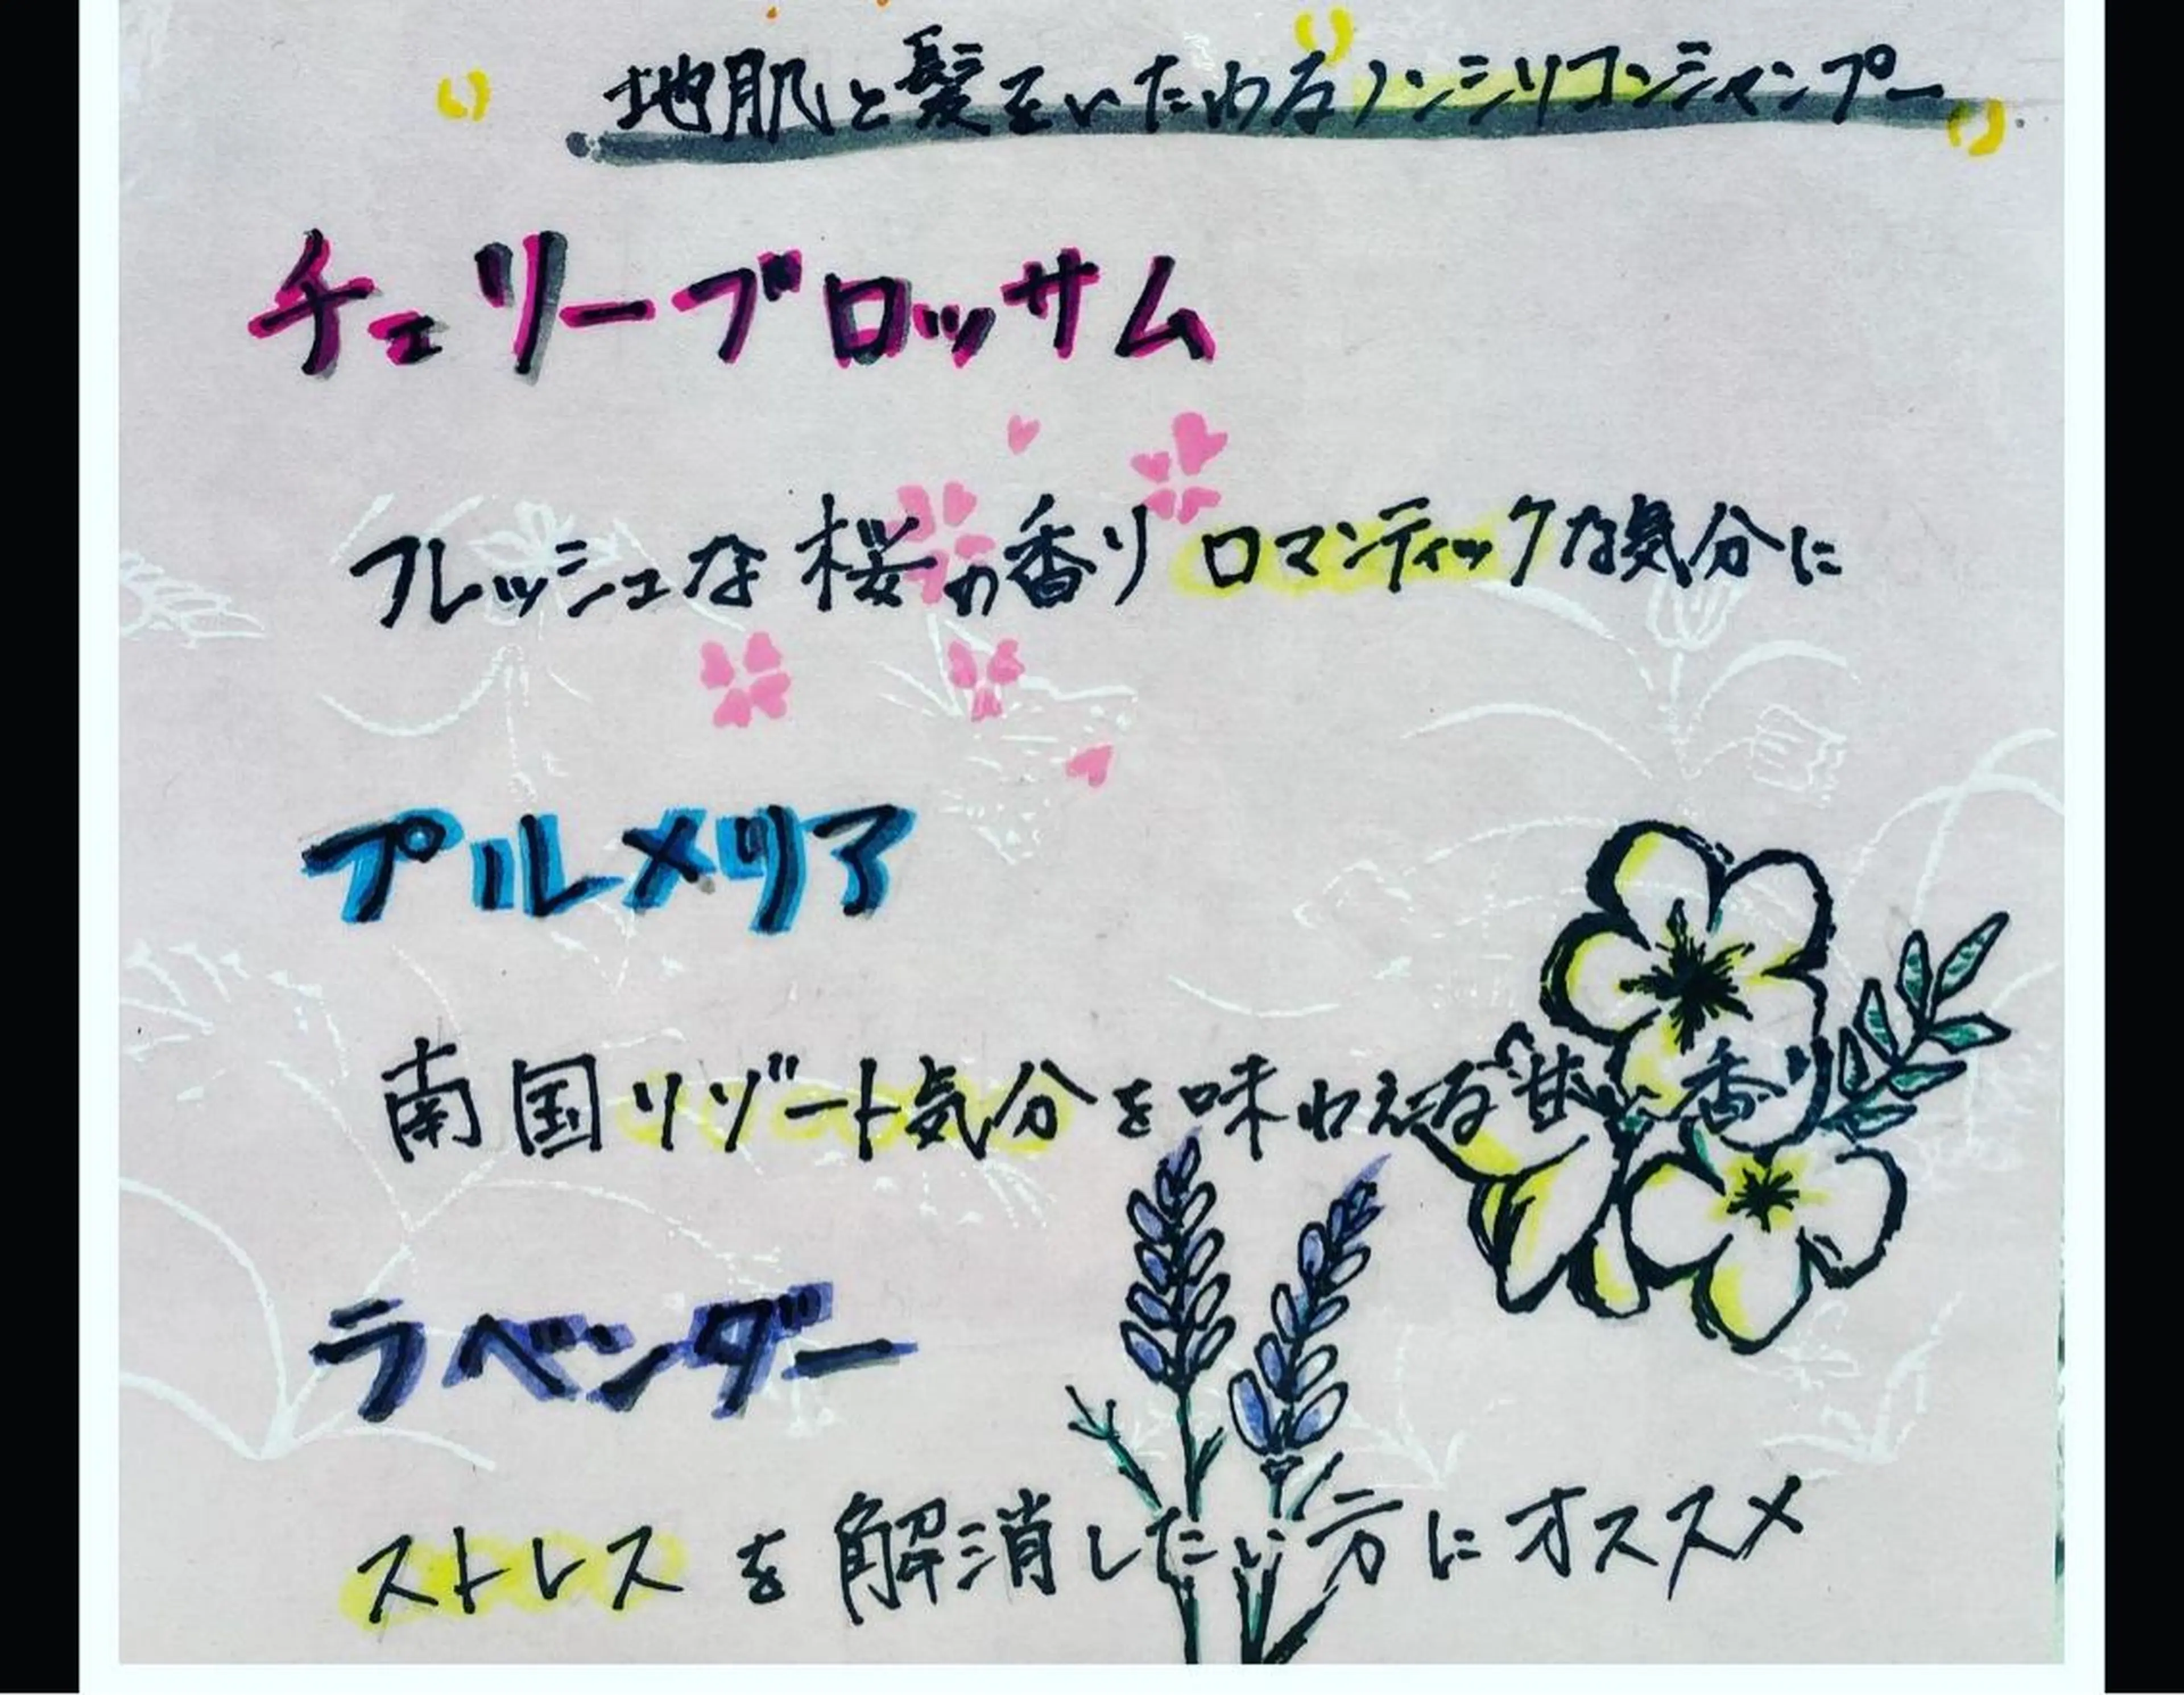 地肌と髪をいたわるノンシリコンシャンプー
チェリーブロッサム
フレッシュな桜の香りロマンティックな気分に
プルメリア
南国リゾート気分を味わえる甘い香り
ラベンダー
ストレスを解消したい方にオススメ